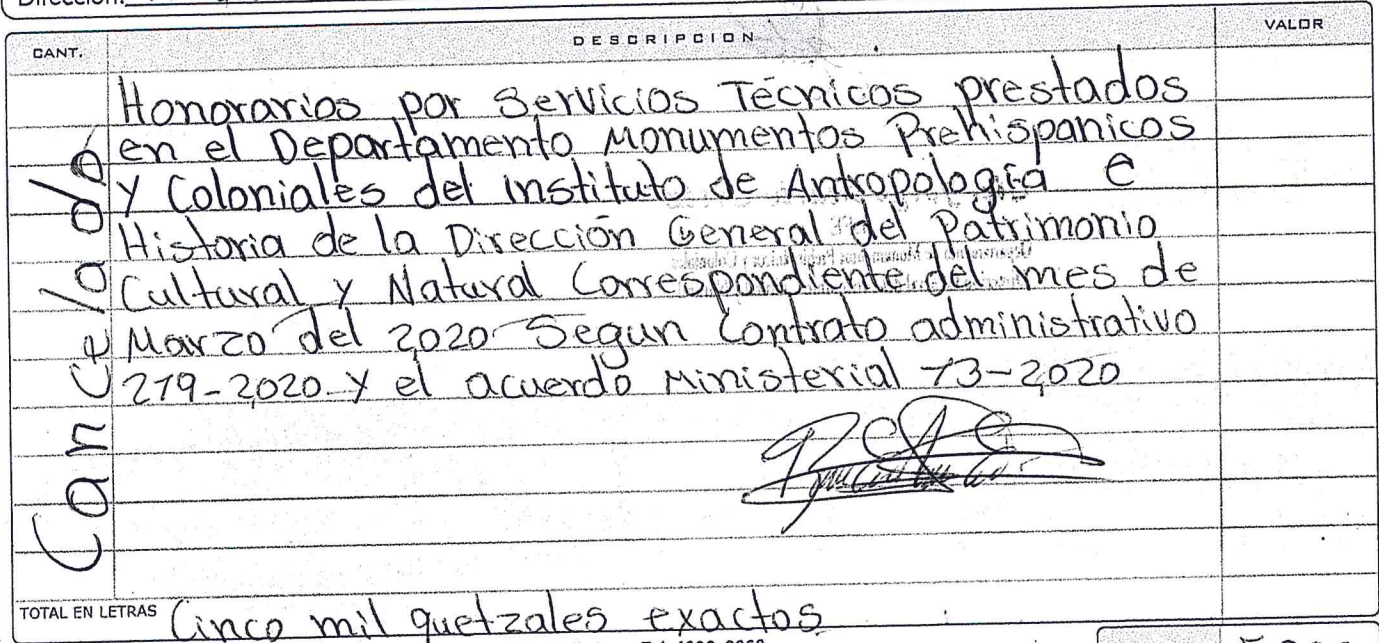 Dirección:
CANT. DESCRIPCION VALOR
Honorarios por Servicios Técnicos prestados
en el Departamento Monumentos Prehispanicos
y Coloniales del instituto de Antropología e
Historia de la Dirección General del Patrimonio
Cultural y Natural Correspondiente del mes de
Marzo del 2020 Segun Contrato administrativo
219-2,020 y el acuerdo Ministerial 73-2,020
Cancelado
TOTAL EN LETRAS Cinco mil quetzales exactos